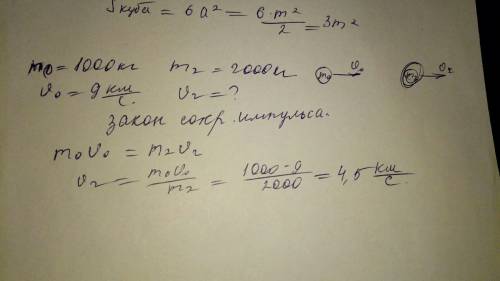 Sкуба = 6a² = 6·m²/2 = 3m²
m₀ = 1000кг m₂ = 2000кг m₀ v₀ v₂
v₀ = 9 км/с. v₂ = ?
закон сохр. импульса.
m₀v₀ = m₂v₂
v₂ = m₀v₀/m₂ = 1000·9/2000 = 4,5 км/с.